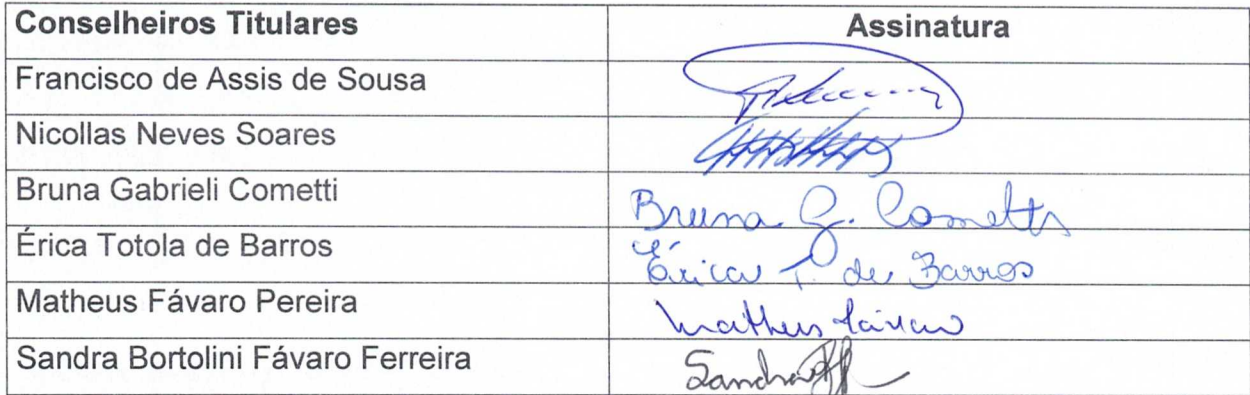 Conselheiros Titulares Assinatura
Francisco de Assis de Sousa
Nicollas Neves Soares
Bruna Gabrieli Cometti Bruna G. Cometti
Érica Totola de Barros Érica T. de Barros
Matheus Fávaro Pereira Matheus Fávaro
Sandra Bortolini Fávaro Ferreira Sandra